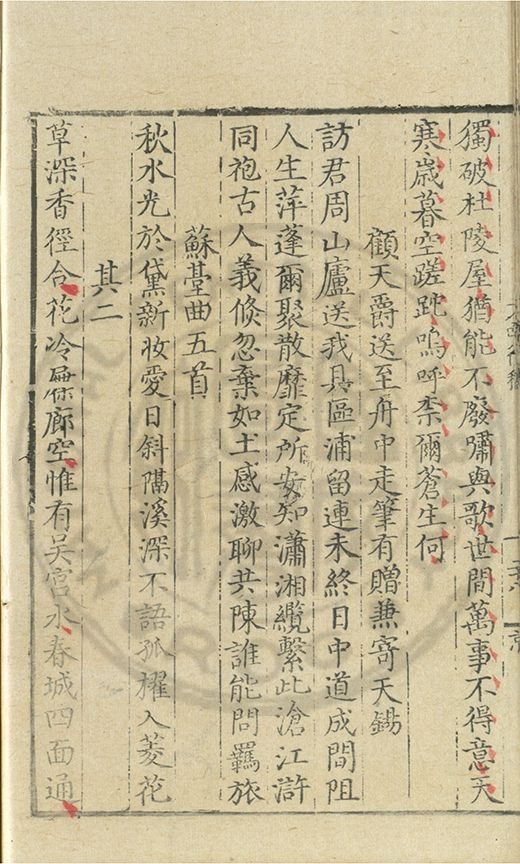 獨破杜陵屋猶能不廢嘯與歌世間萬事不得意天
寒歲暮空蹉跎嗚呼柰爾蒼生何
顧天爵送至舟中走筆有贈兼寄天錫
訪君周山廬送我具區浦留連未終日中道成間阻
人生萍蓬爾聚散靡定所安知瀟湘纜繫此滄江滸
同袍古人義倐忽棄如土感激聊共陳誰能問羈旅
蘇臺曲五首
秋水光於黛新妝愛日斜隔溪深不語孤櫂入菱花
其二
草深香徑合花冷屧廊空惟有吳宮水春城四面通